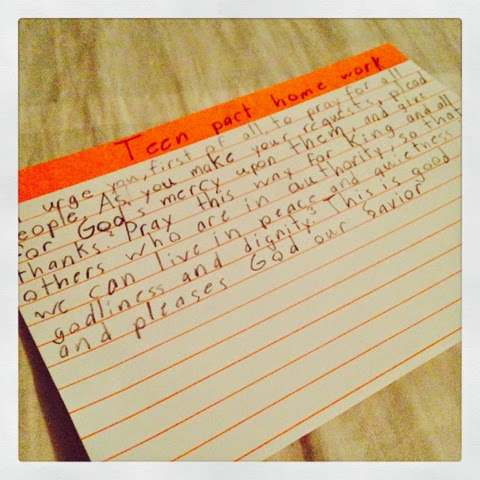 Teen pact home work
I urge you, first of all, to pray for all
eople. As you make your requests, plead
for God's mercy upon them, and give
thanks. Pray this way for king and all
others who are in authority, so that
we can live in peace and quietness
godliness and dignity. This is good
and pleases God our Savior